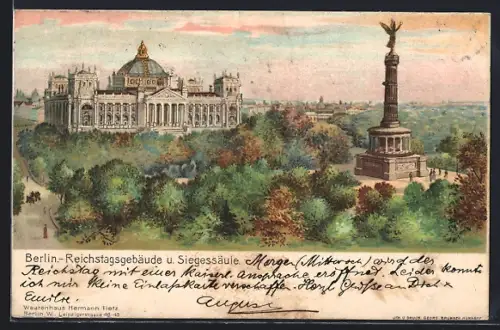 Berlin.- Reichstagsgebäude u. Siegessäule. Morgen (Mittwoch) wird der
Reichstag mit einer Kaiserl. Ansprache eröffnet. Leider konnte
ich mir keine Einlasskarte verschaffen. Herzl. Grüsse an Dich
Emilie. August
Warenhaus Hermann Tietz
Berlin W. Leipzigerstrasse